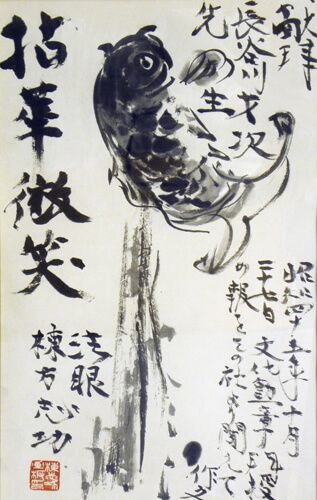 長谷川才次
先生
昭和四十五年十月
二十七日文化勲章
の報をその社より聞いて
拈華微笑
法眼
棟方志功